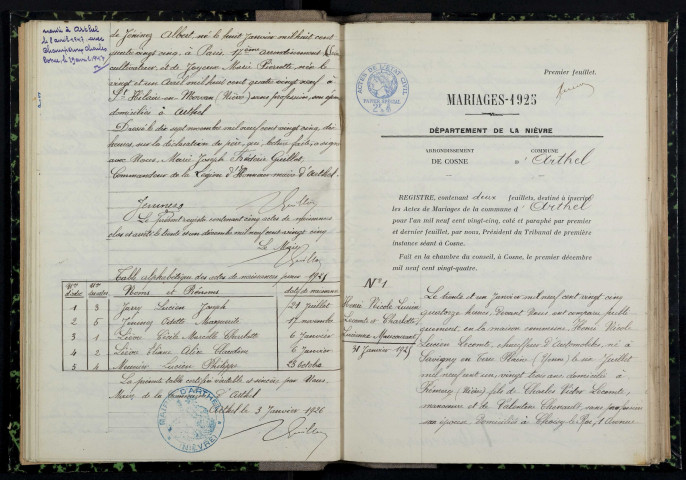 marié à Arthel
le 8 avril 1947 avec
Champenoy Charles
de Jeninez Albert, né le huit janvier mil huit cent
quatre vingt cinq, à Paris, arrondissement
cultivateur, et de Joyeux Marie Pierrette née le
vingt et un Avril mil huit cent quatre vingt neuf à
St Hilaire en Morvan (Nièvre) sans profession, son épouse
domiciliés à Arthel
Dressé le dix sept novembre mil neuf cent vingt cinq, dix
heures, sur la déclaration du père, qui, lecture faite, a signé
avec Nous, Marie Joseph Frédéric Guillot,
Commandeur de la Légion d'Honneur maire d'Arthel.
Le présent registre contenant cinq actes de naissances
clos et arrêté le trente et un décembre mil neuf cent vingt cinq
Le Maire
Table alphabétique des actes de naissances pour 1925
Nos d'ordre Nos des actes Noms et Prénoms date de naissance
1 3 Jarry Lucien Joseph 29 juillet
2 5 Odette Marguerite 17 novembre
3 1 6 janvier
4 2 6 janvier
5 4 Meunier Lucien Philippe 23 octobre
La présente table certifiée véritable et sincère par Nous,
Maire de la Commune d'Arthel
Arthel le 3 janvier 1926
MAIRIE D'ARTHEL
NIÈVRE
ACTES DE L'ÉTAT CIVIL
PAPIER SPÉCIAL
Premier feuillet.
MARIAGES-1925
DÉPARTEMENT DE LA NIÈVRE
ARRONDISSEMENT
DE COSNE
COMMUNE
d'Arthel
REGISTRE, contenant deux feuillets, destiné à inscrire
les Actes de Mariages de la commune d'Arthel
pour l'an mil neuf cent vingt-cinq, coté et paraphé par premier
et dernier feuillet, par nous, Président du Tribunal de première
instance séant à Cosne.
Fait en la chambre du conseil, à Cosne, le premier décembre
mil neuf cent vingt-quatre.
No 1
Henri Nicole Lucien
Lecomte et Charlotte
Lucienne
31 Janvier 1925
Le trente et un Janvier mil neuf cent vingt cinq
quatorze heures, Devant Nous ont comparu publi
quement, en la maison commune, Henri Nicole
Lucien Lecomte, chauffeur d'automobiles, né à
Savigny en Terre Pleine (Yonne) le six Juillet
mil neuf cent un, vingt trois ans domicilié à
Prémery (Nièvre) fils de Charles Victor Lecomte,
et de Valentine sans profession
son épouse domiciliés à